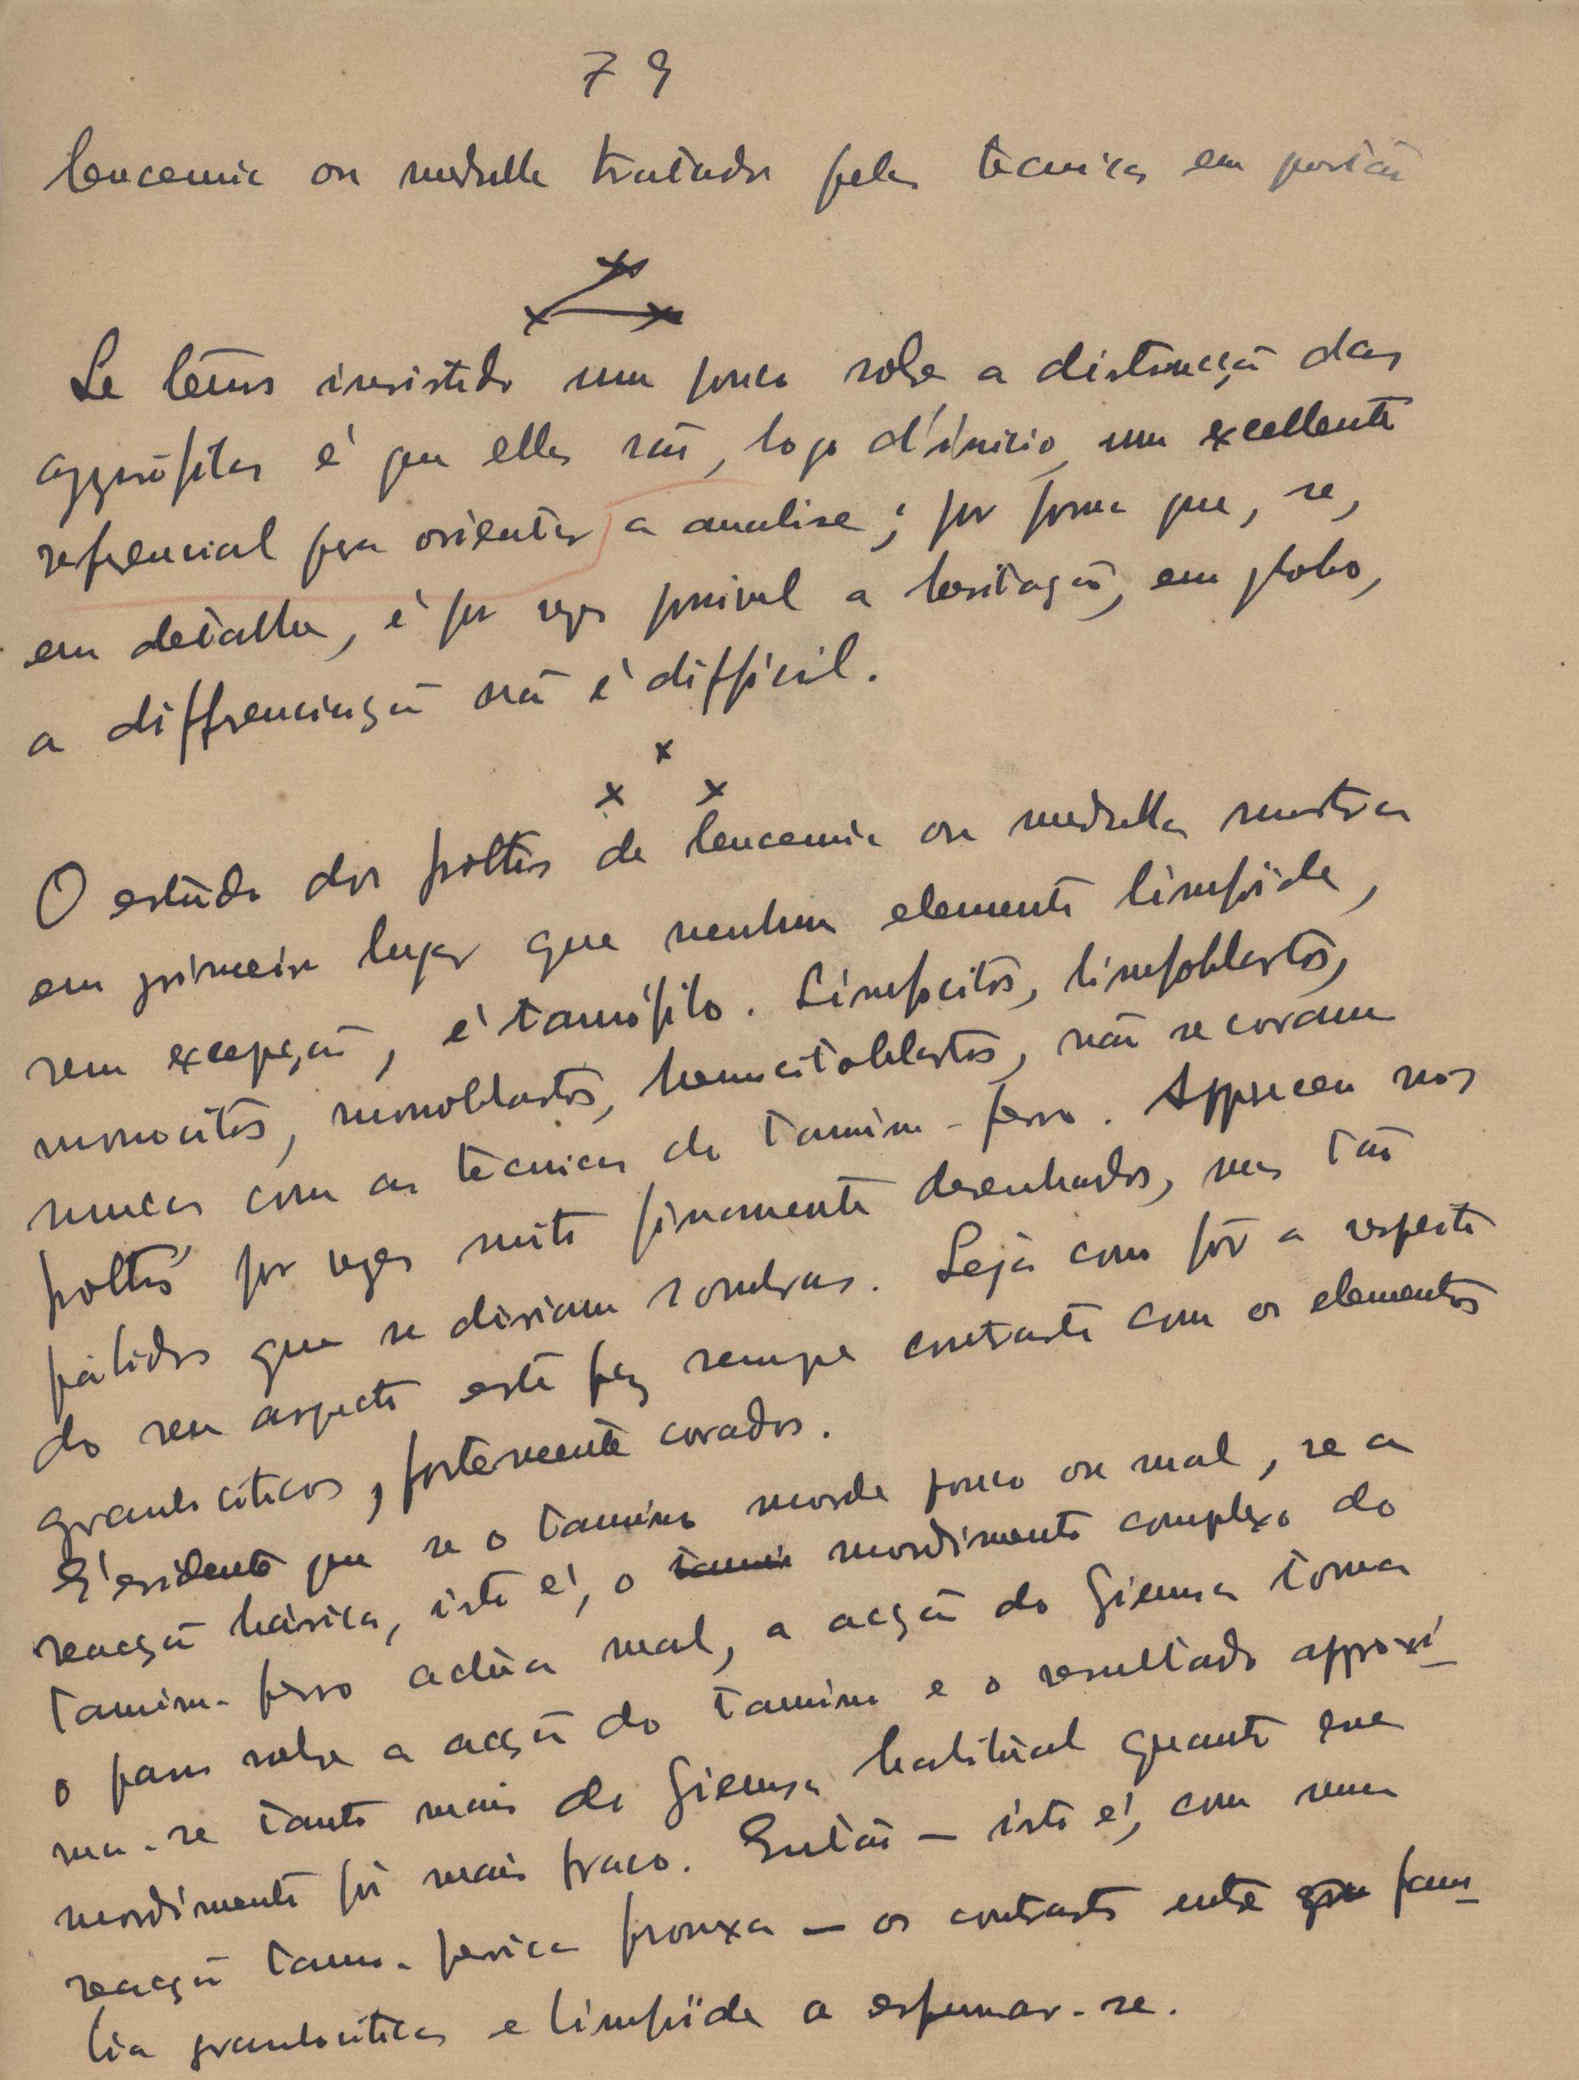 79
leucemia ou medulla tratados pelas tecnicas em
Se temos insistido um pouco sobre a distincção das
é que elles são, logo d'inicio, um excellente
referencial para orientar a analise; por forma que, se,
em detalhe, é por vezes possivel a hesitação, em globo,
a differenciação não é difficil.
O estudo dos frottis de leucemia ou medulla mostra
em primeiro lugar que nenhum elemento limfoide,
sem excepção, é tanófilo. Limfocitos, limfoblastos,
monocitos, monoblastos, hemocitoblastos, não se coram
nunca com as tecnicas do tanino-ferro. Apparecem nos
frottis por vezes muito finamente desenhados, mas tão
pálidos que se diriam sombras. Seja como fôr a respeito
do seu aspecto este faz sempre contraste com os elementos
granulociticos, fortemente corados.
É evidente que se o tanino morde pouco ou mal, se a
reacção básica, isto é, o tanino mordimento complexo do
tanino-ferro actúa mal, a acção do Giemsa toma
o passo sobre a acção do tanino e o resultado approxi-
ma-se tanto mais do Giemsa habitúal quanto esse
mordimento fôr mais fraco. Então — isto é, com uma
reacção tano-ferrica frouxa — os contrastes entre gra fami-
lia granulocitica e limfoide a esfumar-se.